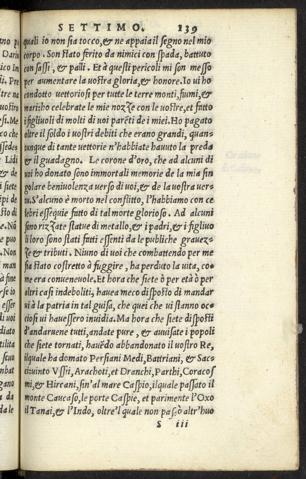 SETTIMO. 239
quali io non sia tocco,& ne appaia il segno nel mio
corpo. Son stato ferito da nimici con spada, battuto
con sassi, & palli. Et à questi pericoli mi son messo
per aumentare la uostra gloria,& honore. Io ui ho
condotto uettoriosi per tutte le terre monti, fiumi,&
mari:ho celebrate le mie nozze con le uostre,et fatto
i figliuoli di molti di uoi parẽti de i miei. Ho pagato
oltre il soldo i uostri debiti che erano grandi, quan-
tunque di tante uettorie n'habbiate hauuto la preda
& il guadagno. Le corone d'oro, che ad alcuni di
uoi ho donato sono immortali memorie de la mia sin
golare beniuolenza uerso di uoi,& de la uostra uer-
tu.S'alcuno è morto nel conflitto, l'habbiamo con ce
lebri essequie fatto di tal morte glorioso. Ad alcuni
sono rizzate statue di metallo,& i padri,& i figliuo
li loro sono stati fatti essenti da le publiche grauez-
ze & tributi. Niuno di uoi che combattendo per me
sia stato costretto à fuggire, ha perduto la uita, co-
me era conueneuole. Et hora che siete ò per età ò per
altri casi indeboliti, hauea meco disposto di mandar
ui à la patria in tal guisa, che quei che ui stanno ocio
si ui hauessero inuidia. Ma hora che siete disposti
d'andaruene tutti, andate pure, & auuisate i popoli
che siete tornati, hauẽdo abbandonato il uostro Re,
il quale ha domato Persiani Medi, Battriani, & Sac
ci:uinto Vssii, Arachoti, et Dranchi, Parthi, Coracos
mi,& Hircani, fin'al mare Caspio, il quale passato il
monte Caucaso, le porte Caspie, et parimente l'Oxo
il Tanai,& l'Indo, oltre'l quale non passò altr'huo
S iii